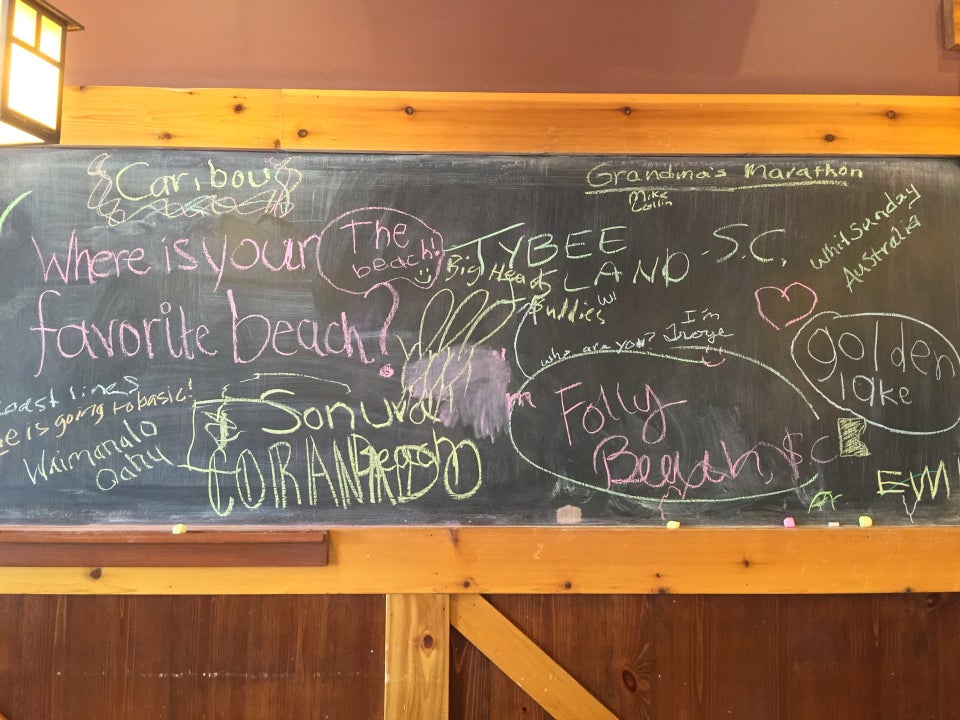 Caribou
Grandma's Marathon
Mike
Where is your
favorite beach?
The
beach!
TYBEE
ISLAND - S.C.
Big Head
Buddies
WI
whitsunday
Australia
I'm
who are you?
golden
lake
Coast lines
is going to basic!
Waimanalo
Oahu
CORANADO
Beach
Folly
Beach, SC
EVM